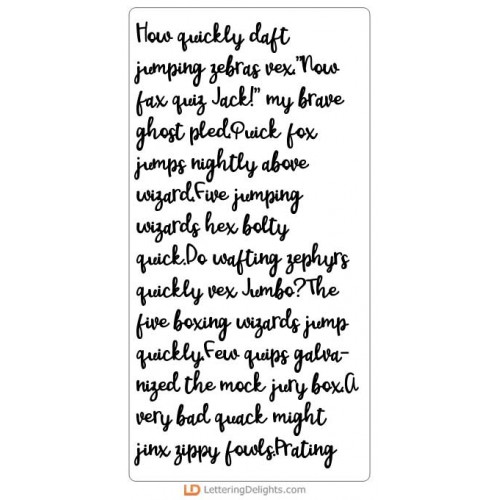 How quickly daft
jumping zebras vex."Now
fax quiz Jack!" my brave
ghost pled.Quick fox
jumps nightly above
wizard.Five jumping
wizards hex bolty
quick.Do wafting zephyrs
quickly vex Jumbo?The
five boxing wizards jump
quickly.Few quips galva-
nized the mock jury box.A
very bad quack might
jinx zippy fowls.Prating
LD LetteringDelights.com